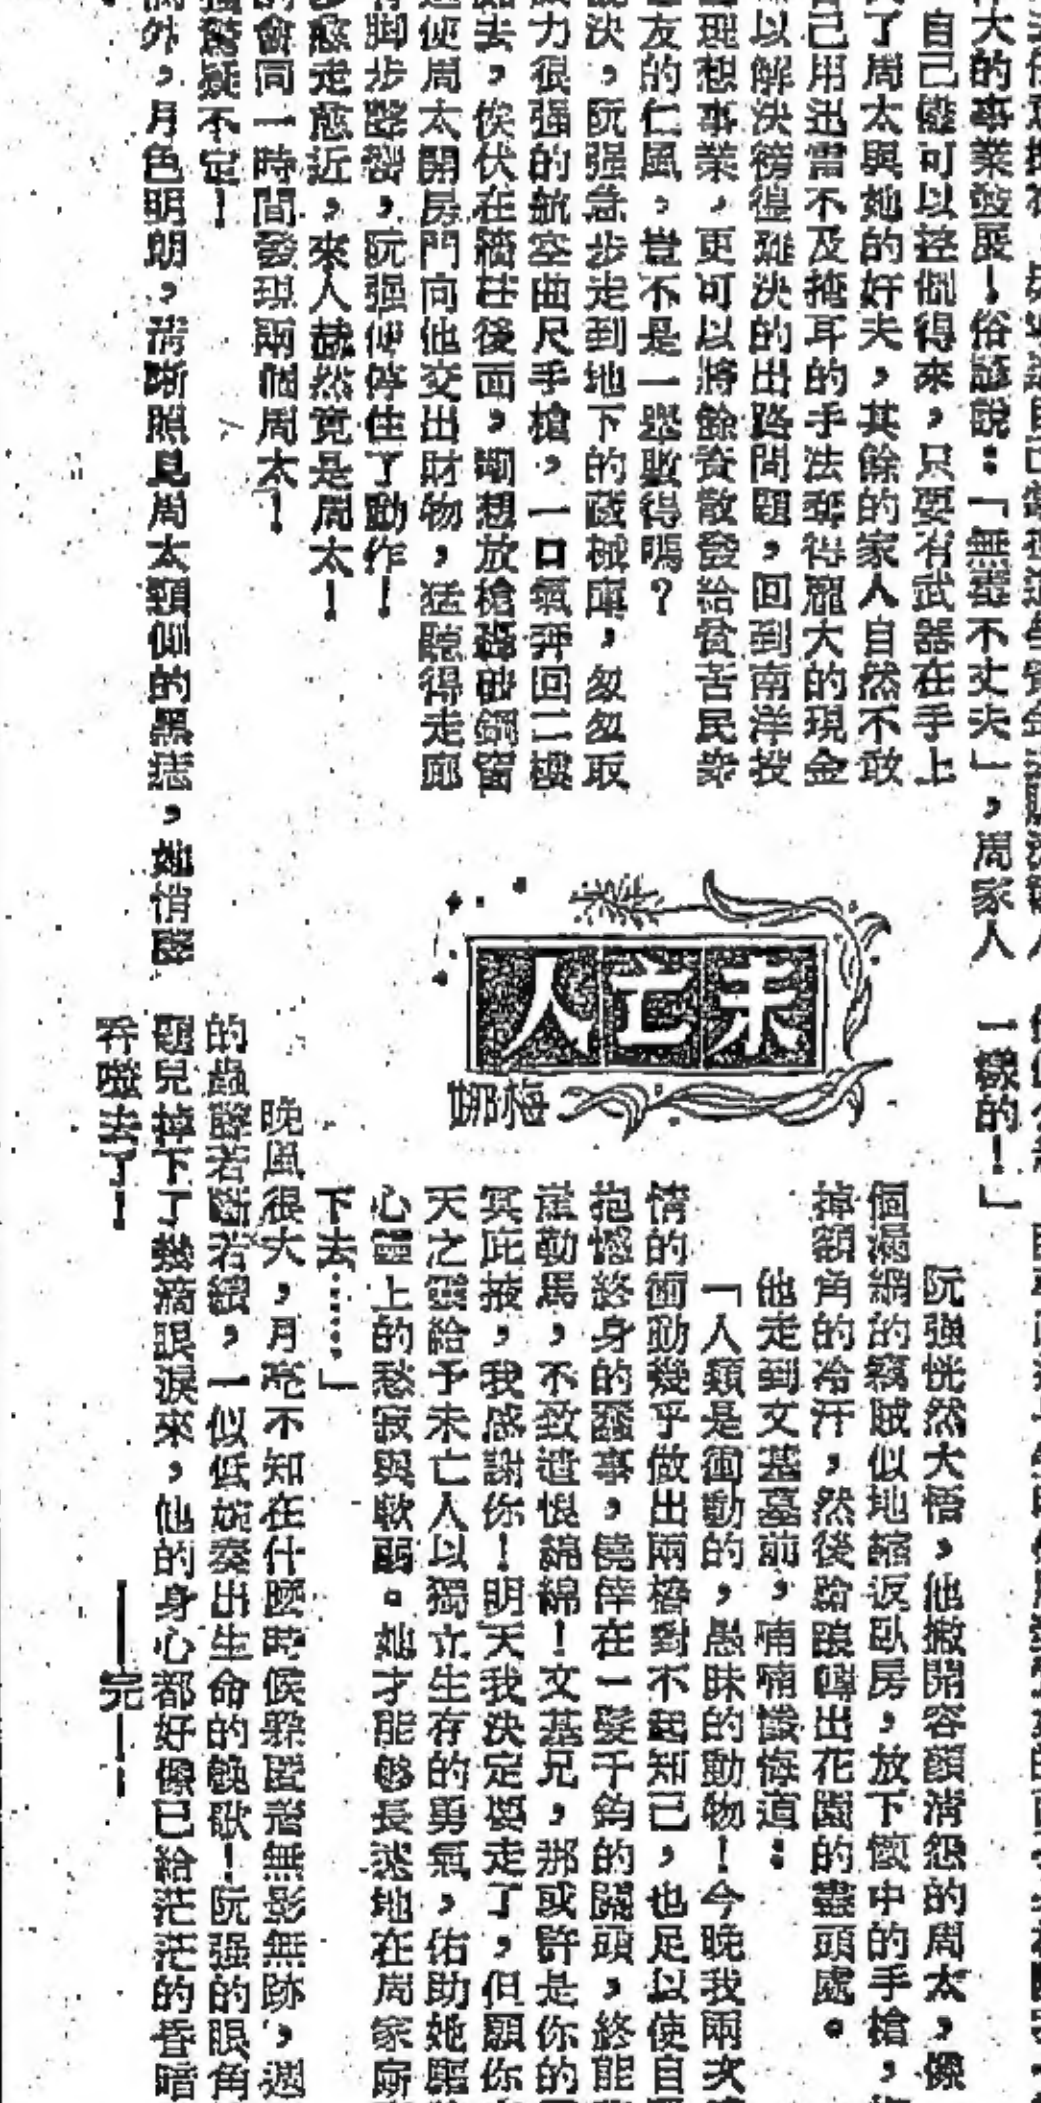 大的事業發展！俗語說：「無毒不丈夫」，周家人
自己儘可以控個得來，只要有武器在手上
了周太與她的奸夫，其餘的家人自然不敢
己用迅雷不及掩耳的手法奪得龐大的現金
以解決徬徨難決的出路問題，回到南洋投
理想事業，更可以將餘資散發給貧苦民衆
友的仁風，豈不是一舉數得嗎？
決，阮强急步走到地下的藏械庫，匆匆取
力很强的航空曲尺手槍，一口氣奔回二樓
去，俟伏在牆柱後面，剛想放槍擊破鋼窗
使周太開房門向他交出財物，猛聽得走廊
脚步聲響，阮强便停住了動作！
愈走愈近，來人赫然竟是周太！
會同一時間發現兩個周太！
驚疑不定！
外，月色明朗，清晰照見周太頸側的黑痣，她悄聲
未亡人
梅娜
一樣的！」
阮强恍然大悟，他撇開容顏清怨的周太，像
個漏網的竊賊似地縮返臥房，放下懷中的手槍，
掉額角的冷汗，然後踉蹌出花園的盡頭處。
他走到文基墓前，喃喃懺悔道：
「人類是衝動的，愚昧的動物！今晚我兩次
情的衝動幾乎做出兩樁對不起知己，也足以使自
抱憾終身的蠢事，僥倖在一髮千鈞的關頭，終能
崖勒馬，不致遺恨綿綿！文基兄，那或許是你的
冥庇掖，我感謝你！明天我決定要走了，但願你
天之靈給予未亡人以獨立生存的勇氣，佑助她驅
心靈上的愁寂與軟弱。她才能够長遠地在周家
下去……」
晚風很大，月亮不知在什麼時候躱匿着無影無跡，週
的蟲聲若斷若續，一似低婉奏出生命的輓歌！阮强的眼角
兒掉下了幾滴眼淚來，他的身心都好像已給茫茫的昏暗
吞噬去了！
——完——